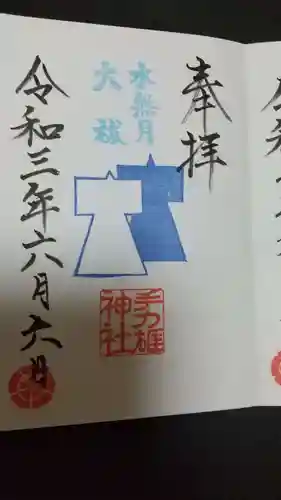 奉拝
水無月
大祓
手力雄
神社
令和三年六月六日